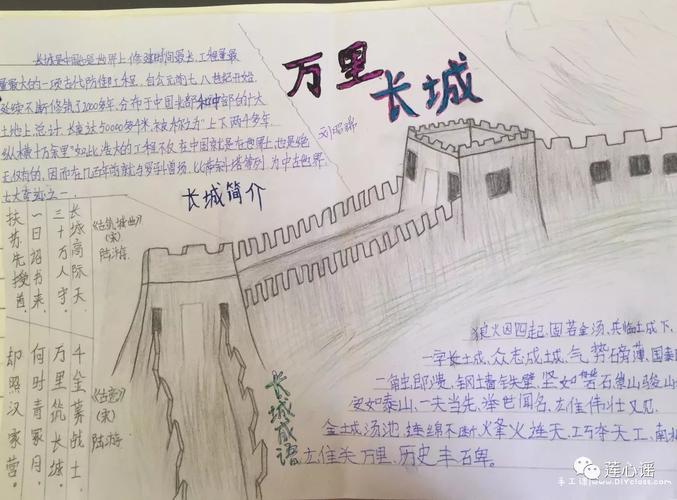 万里
长城
刘昭锦
长城是中国也是世界上修建时间最长，工程量最
量最大的一项古代防御工程，自公元前七八世纪开始，
延续不断修筑了2000多年，分布于中国北部和中部的广大
土地上，总计长度达50000多千米，被称为“上下两千多年，
纵横十万余里”如此浩大的工程不仅在中国就是在世界上，也是绝
无仅有的，因而在几百年前就与罗马斗兽场、比萨斜塔等列为中古世界
七大奇迹之一
长城简介
《古筑城曲》
(宋)
陆游
长城高际天
三十万人守
一日诏书来
扶苏先授首
《古意》
(宋)
陆游
千金募战士
万里筑长城
何时青冢月
却照汉家营。
长城成语
狼火四起，固若金汤，兵临城下，
一字长城，众志成城，气势磅薄，国泰
二龙
安如泰山，一夫当先，举世闻名，雄伟壮
金城汤池，连绵不断，烽火连天，巧夺天工，南北
万里，历史丰碑。
莲心谣
手工课|www.DIYclass.com